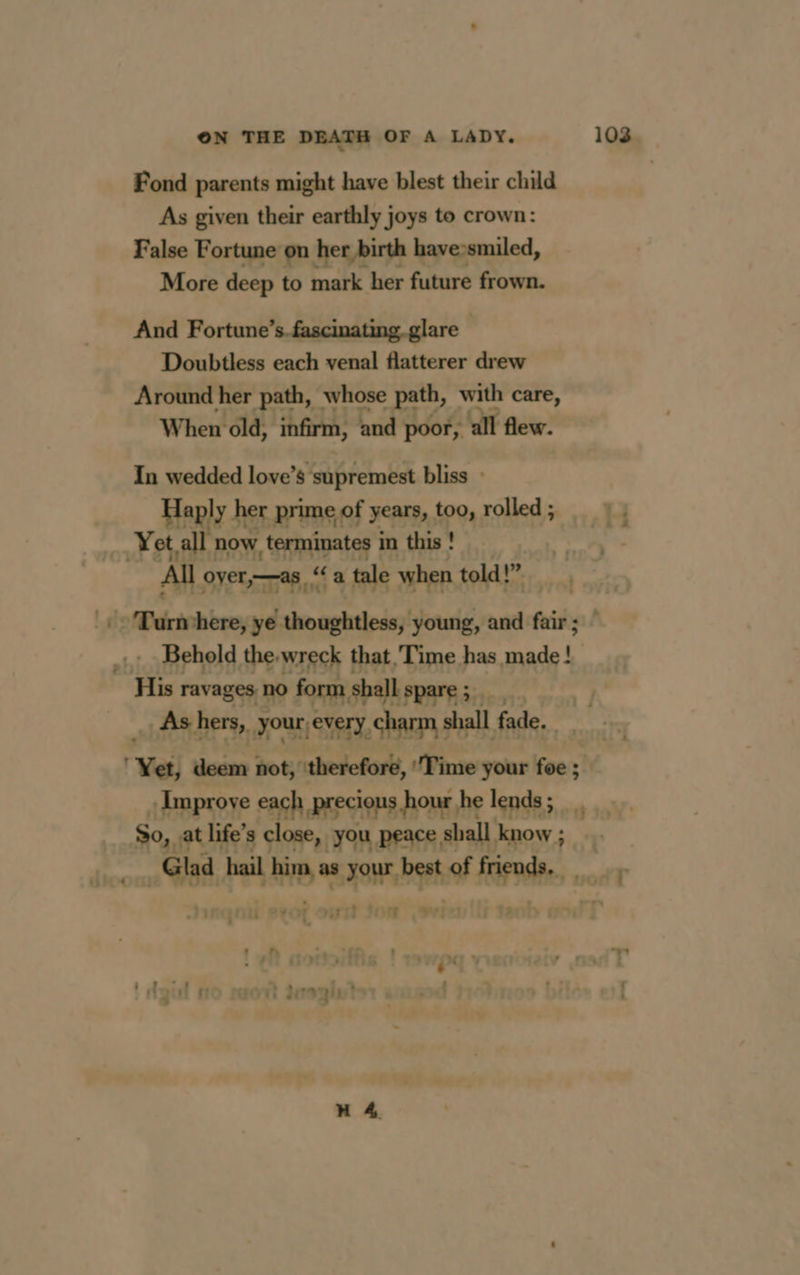 ON THE DEATH OF A LADY. 103
Fond parents might have blest their child
As given their earthly joys to crown:
False Fortune on her birth have smiled,
More deep to mark her future frown.
And Fortune's fascinating glare
Doubtless each venal flatterer drew
Around her path, whose path, with care,
When old, infirm, and poor, all flew.
In wedded love's supremest bliss
Haply her prime of years, too, rolled;
Yet all now terminates in this!
All over,—as “a tale when told!”
Turn here, ye thoughtless, young, and fair;
Behold the wreck that Time has made!
His ravages no form shall spare;
As hers, your every charm shall fade.
Yet, deem not, therefore, Time your foe;
Improve each precious hour he lends;
So, at life's close, you peace shall know;
Glad hail him as your best of friends.
H 4